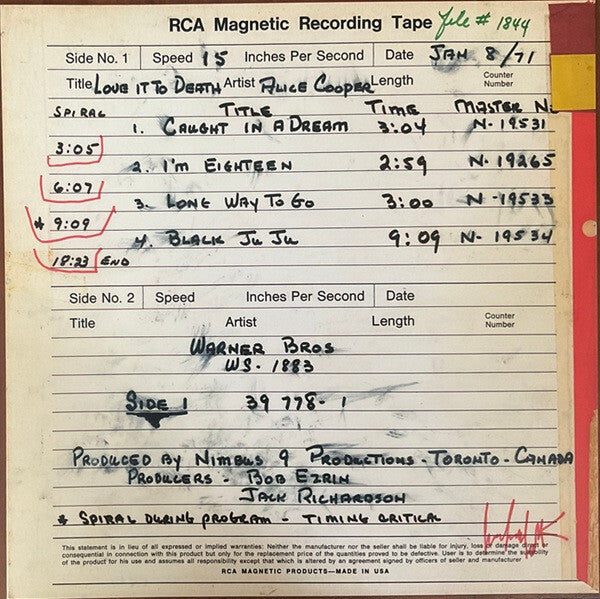 RCA Magnetic Recording Tape file # 1844
Side No. 1 Speed 15 Inches Per Second Date JAN 8/71
Title LOVE IT TO DEATH Artist ALICE COOPER Length Counter Number
SPIRAL TITLE TIME MASTER No
1. CAUGHT IN A DREAM 3:04 N-19531
3:05
2. I'M EIGHTEEN 2:59 N-19265
6:07
3. LONG WAY TO GO 3:00 N-19533
* 9:09
4. BLACK JU JU 9:09 N-19534
18:23 END
Side No. 2 Speed Inches Per Second Date
Title Artist Length Counter Number
WARNER BROS
WS-1883
SIDE 1 39 778-1
PRODUCED BY NIMBUS 9 PRODUCTIONS - TORONTO - CANADA
PRODUCERS - BOB EZRIN
JACK RICHARDSON
* SPIRAL DURING PROGRAM - TIMING CRITICAL
This statement is in lieu of all expressed or implied warranties: Neither the manufacturer nor the seller shall be liable for injury, loss or damage direct or
consequential in connection with this product but only for the replacement price of the quantities proved to be defective. User is to determine the suitability
of the product for his use and assumes all responsibility except that which is altered by an agreement signed by officers of seller and manufacturer
RCA MAGNETIC PRODUCTS—MADE IN USA